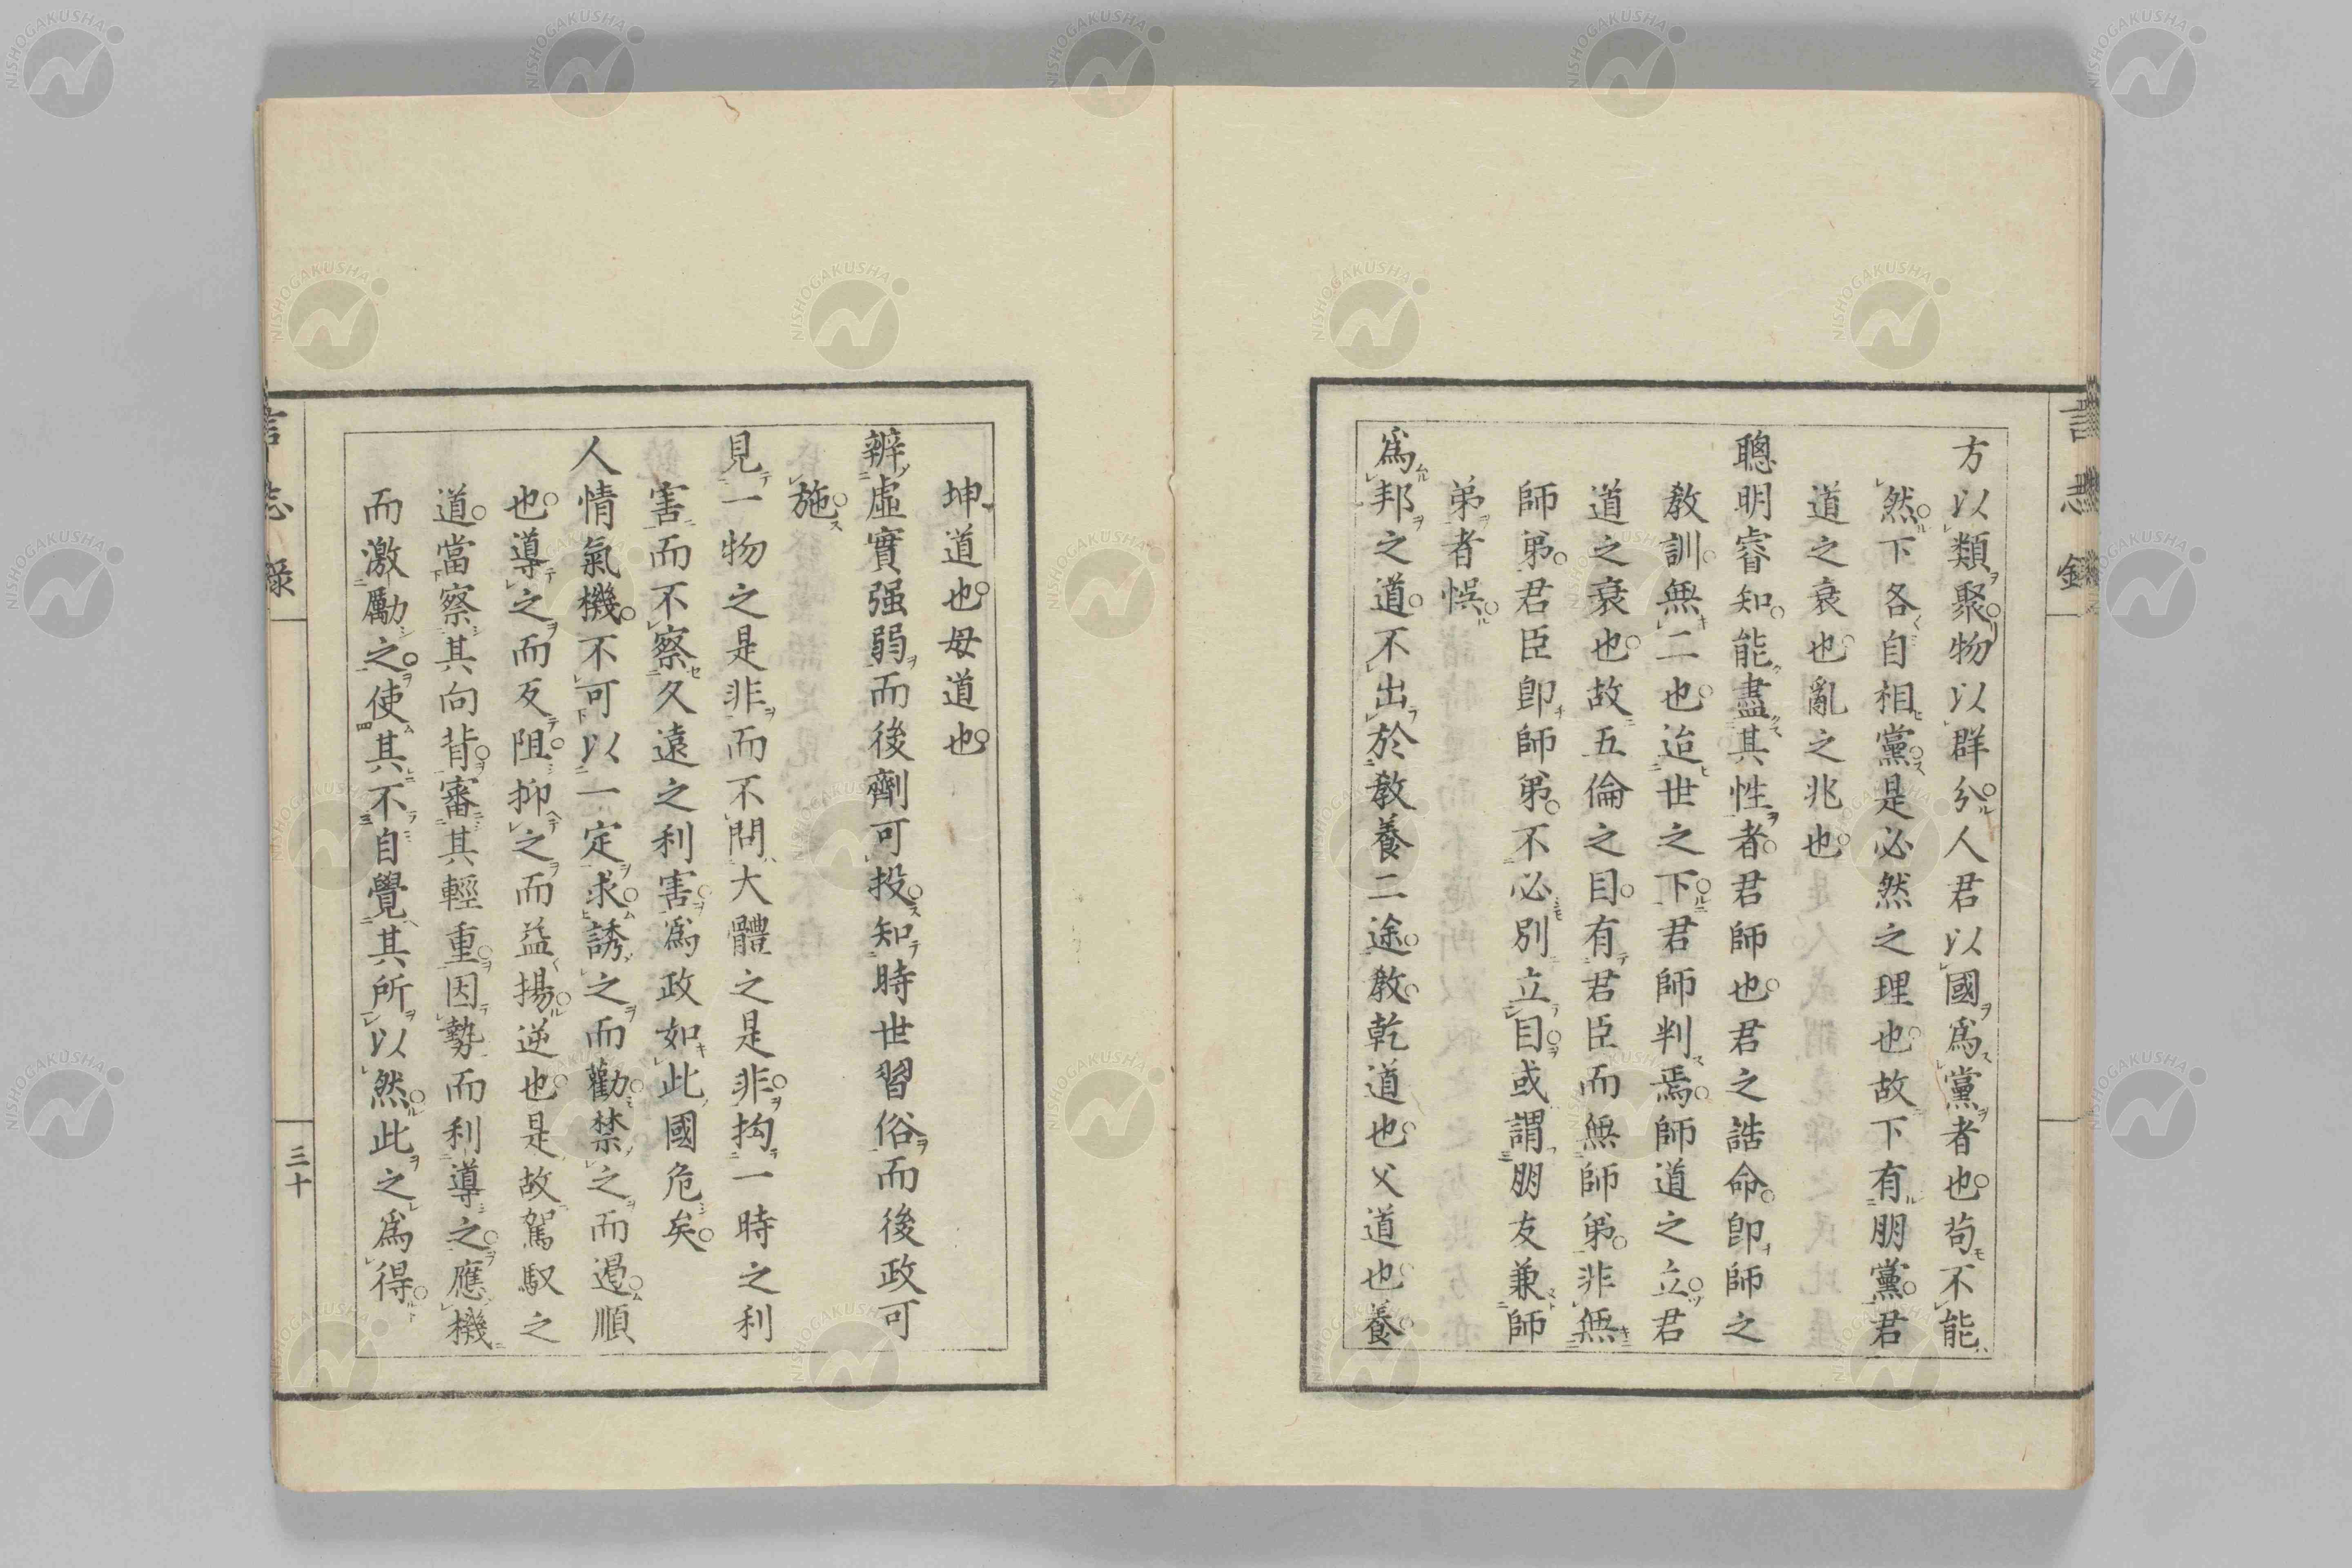 言志録
方以類聚物以群分人君以國爲黨者也苟不能
然下各自相黨是必然之理也故下有朋黨君
道之衰也亂之兆也
聰明睿知能盡其性者君師也君之誥命卽師之
敎訓無二也迨世之下君師判焉師道之立君
道之衰也故五倫之目有君臣而無師弟非無
師弟君臣卽師弟不必別立目或謂朋友兼師
弟者悞
爲邦之道不出於敎養二途敎乾道也父道也養
坤道也母道也
辨虛實强弱而後劑可投知時世習俗而後政可
施
見一物之是非而不問大體之是非拘一時之利
害而不察久遠之利害爲政如此國危矣
人情氣機不可以一定求誘之而勸禁之而遏順
也導之而反阻抑之而益揚逆也是故駕馭之
道當察其向背審其輕重因勢而利導之應機
而激勵之使其不自覺其所以然此之爲得
言志錄
三十
NISHOGAKUSHA